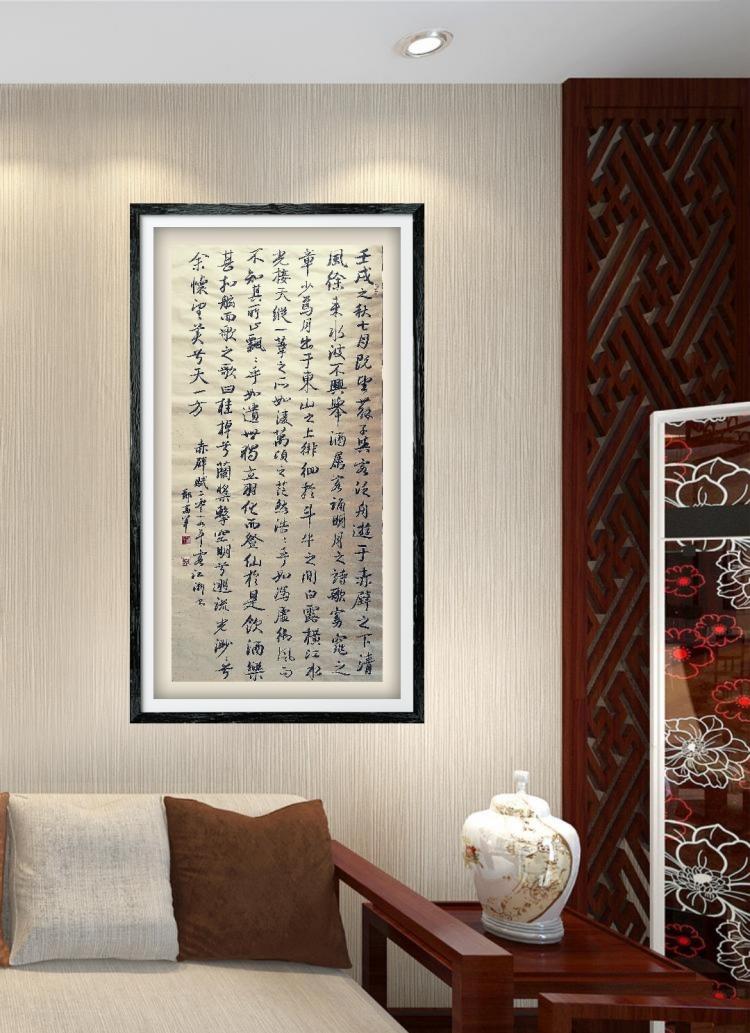 壬戌之秋七月既望蘇子與客泛舟遊于赤壁之下清
風徐来水波不興舉酒属客誦明月之詩歌窈窕之
章少焉月出于東山之上徘徊於斗牛之间白露横江水
光接天縱一葦之所如凌萬頃之茫然浩:乎如馮虚御風而
不知其所止飄:乎如遺世獨立羽化而登仙於是飲酒樂
甚扣舷而歌之歌曰桂棹兮蘭槳擊空明兮遡流光渺:兮
余懷望美兮天一方
赤壁賦二零一九年